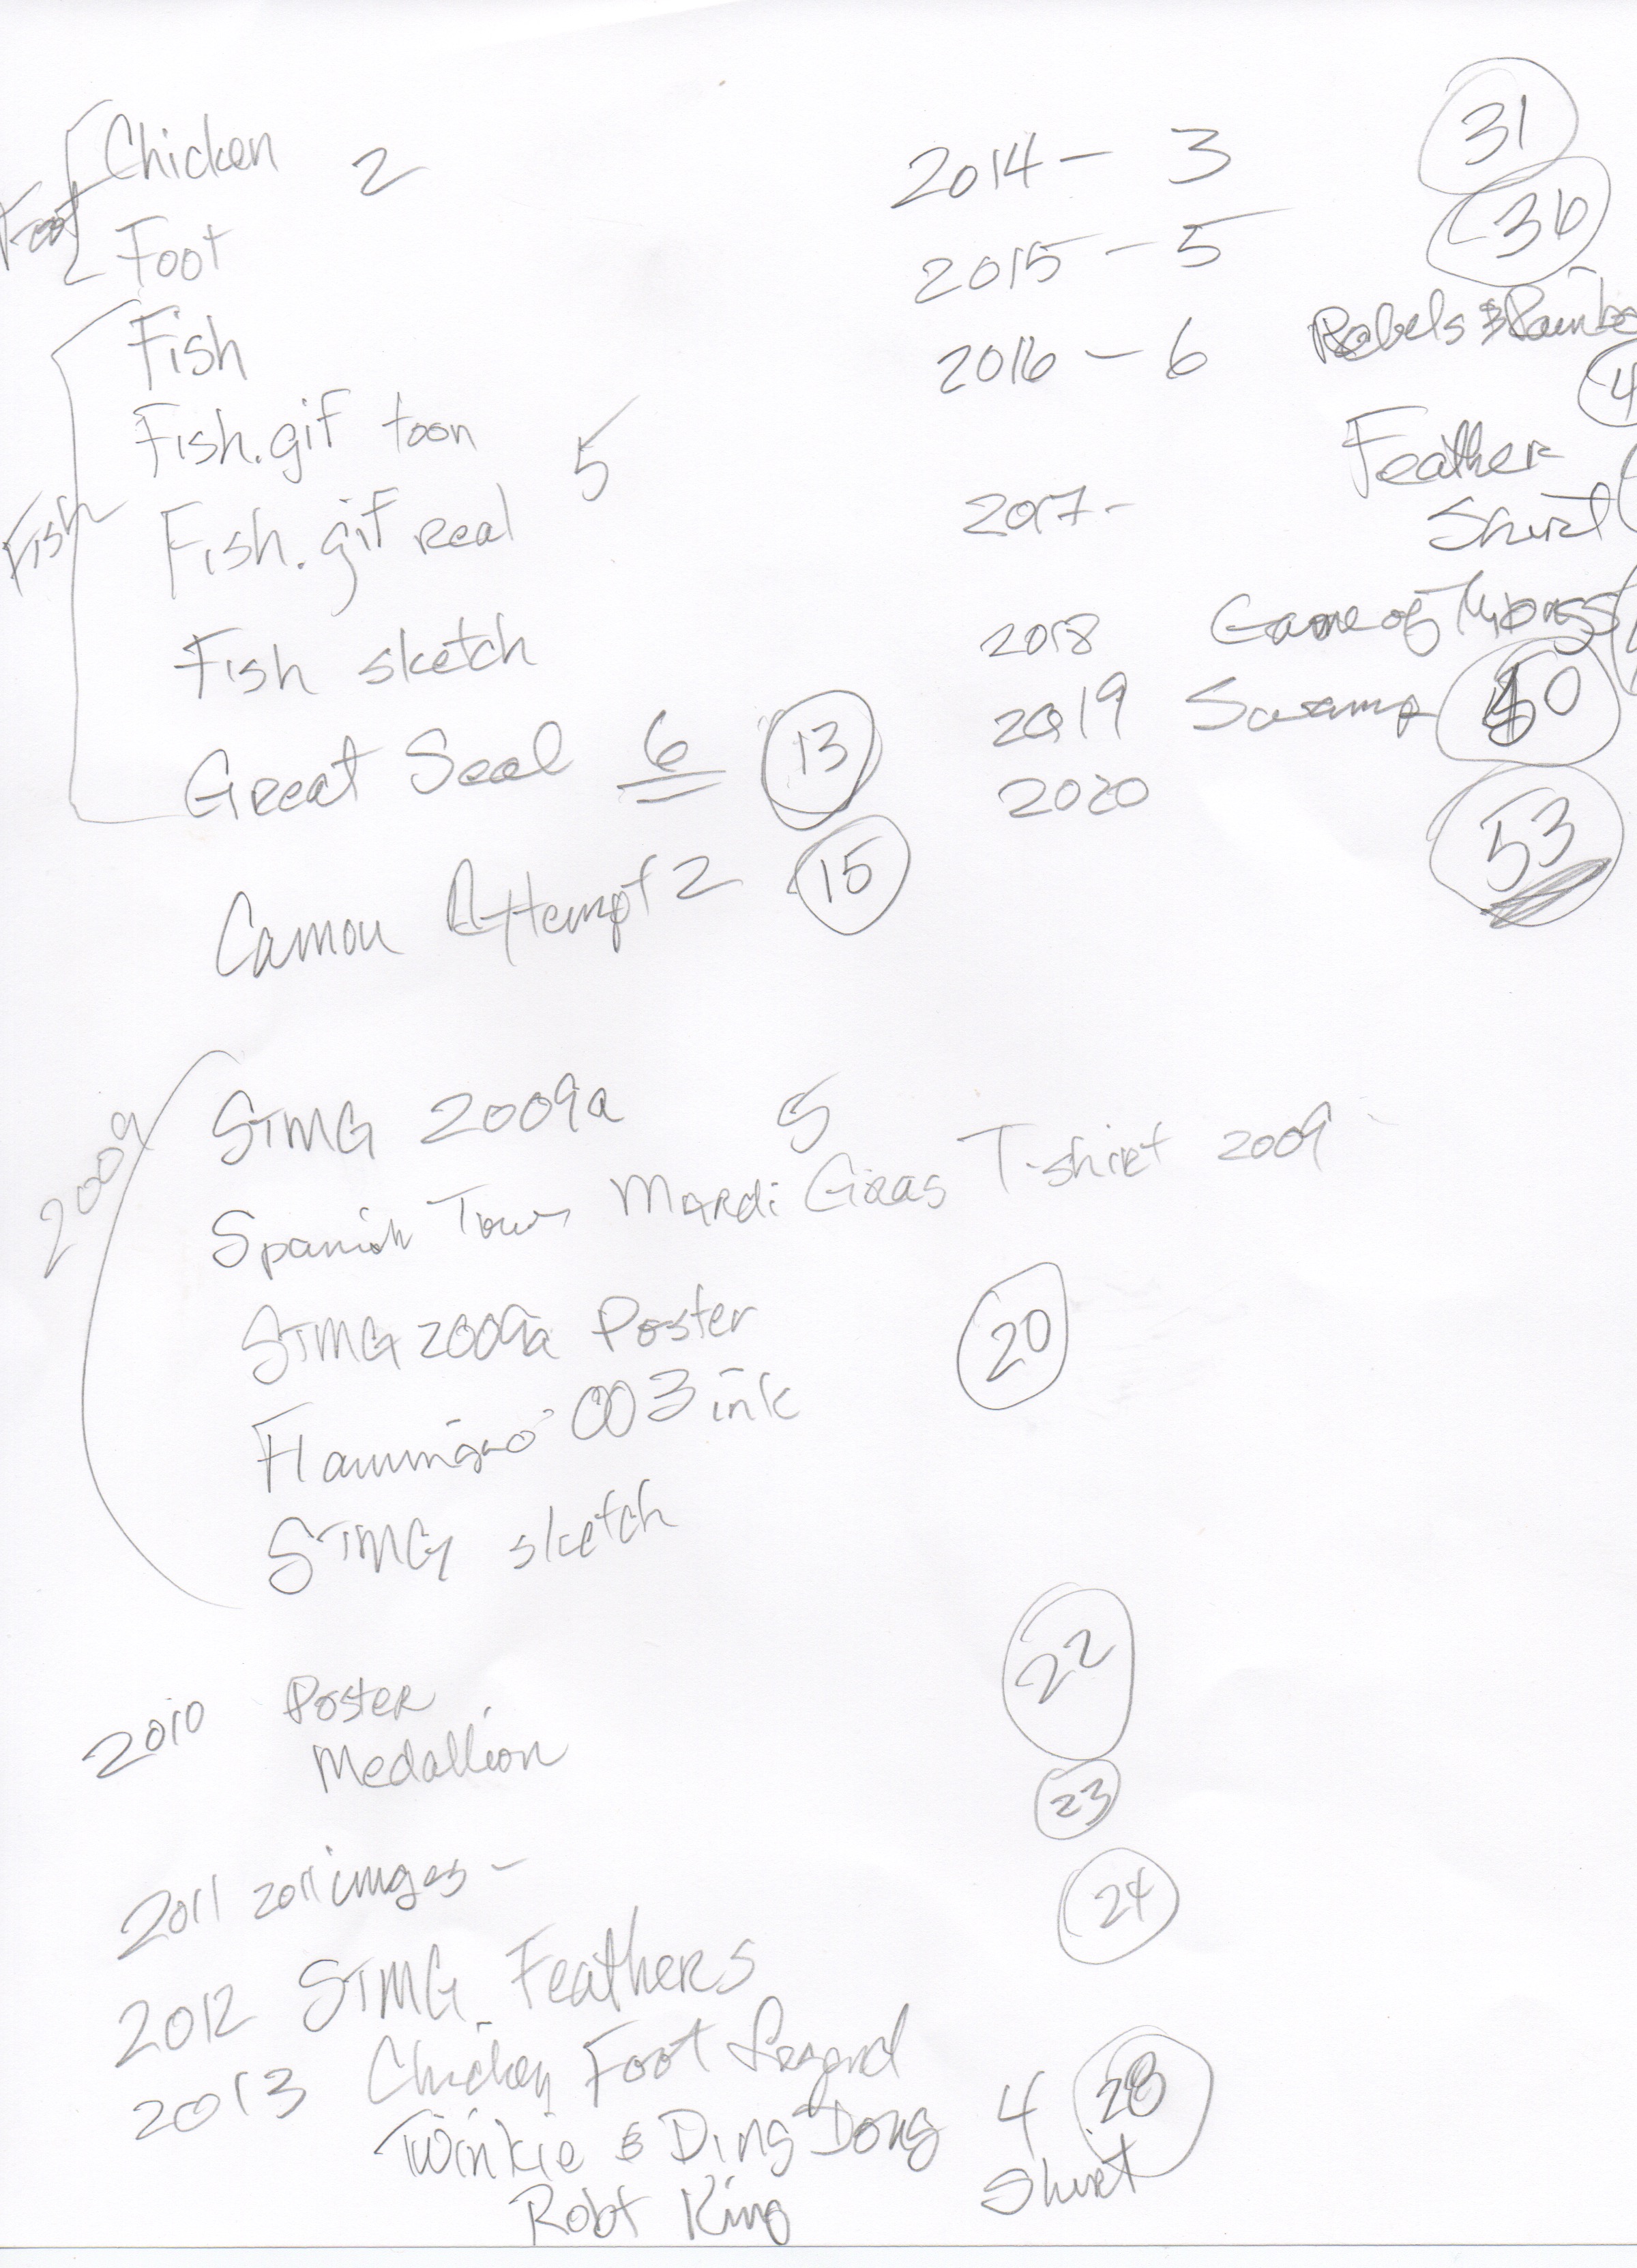 Chicken 2
Foot
Foot
Fish
Fish.gif toon 5
Fish.gif real
Fish
Fish sketch
Great Seal 6 13
Camou Attempt 2 15
2009
STMG 2009a 5
Spanish Town Mardi Gras T-shirt 2009
STMG 2009a Poster 20
Flammingo 003 ink
STMG sketch
2010 Poster 22
Medallion
23
2011 2011 images -
24
2012 STMG Feathers
2013 Chicken Foot Legend
Twinkie & Ding Dong 4 28
Robt King Shirt
2014 - 3 31
2015 - 5 36
2016 - 6 Rebels &
4
Feather
2017 - Shirt
2018 Game of
2019 Swamp 50
2020 53